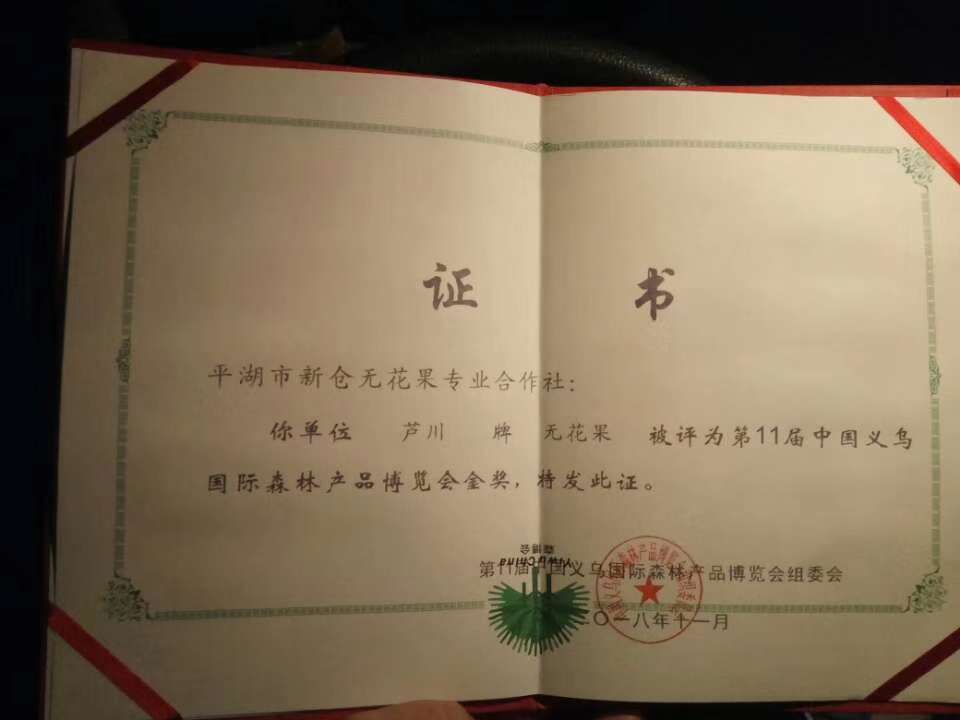 证 书
平湖市新仓无花果专业合作社：
你单位 芦川 牌 无花果 被评为第11届中国义乌
国际森林产品博览会金奖，特发此证。
YiwuChina
森博会
第11届中国义乌国际森林产品博览会组委会
二〇一八年十一月